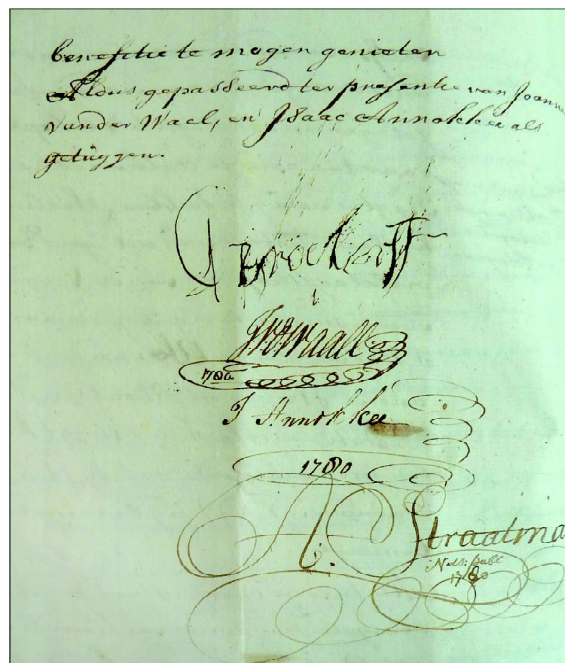 benefitie te mogen genieten
Aldus gepasseerd ter presentie van Joanne
vander Wael, en Isaac Annokkee als
getuygen.
1780
I Annokkee
1780
A. Straatma
Not: Publ
1780